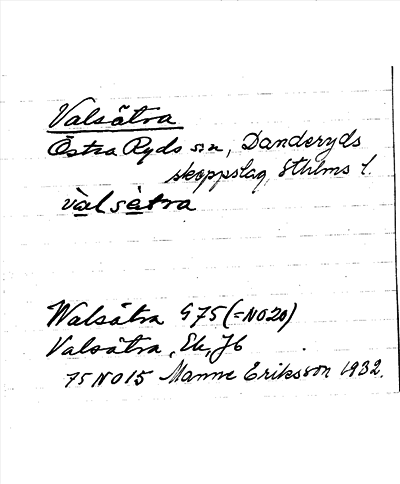 Valsätra
Östra Ryds sn, Danderyds
skeppslag, Sthlms l.
vàlsètra
Walsätra G 75 (=NO20)
Valsätra, Ek, Jb
75 NO15 Manne Eriksson 1932.